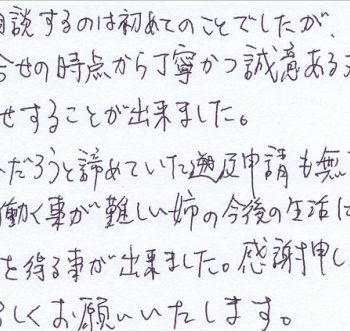 相談するのは初めてのことでしたが、
合せの時点から丁寧かつ誠意ある
せすることが出来ました。
だろうと諦めていた遡及申請も無
働く事が難しい姉の今後の生活に
を得る事が出来ました。感謝申し
しくお願いいたします。